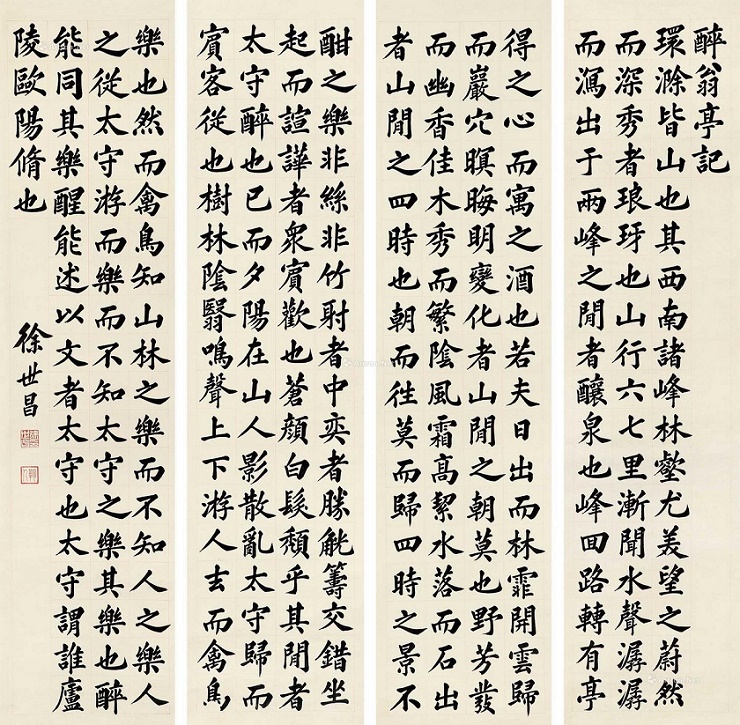 醉翁亭記
環滁皆山也其西南諸峰林壑尤美望之蔚然
而深秀者琅玡也山行六七里漸聞水聲潺潺
而瀉出于兩峰之閒者釀泉也峰回路轉有亭
得之心而寓之酒也若夫日出而林霏開雲歸
而巖穴暝晦明變化者山閒之朝莫也野芳發
而幽香佳木秀而繁陰風霜高絜水落而石出
者山閒之四時也朝而往莫而歸四時之景不
酣之樂非絲非竹射者中奕者勝觥籌交錯坐
起而諠譁者眾賓歡也蒼顏白髮頹乎其閒者
太守醉也已而夕陽在山人影散亂太守歸而
賓客從也樹林陰翳鳴聲上下游人去而禽鳥
樂也然而禽鳥知山林之樂而不知人之樂人
之從太守游而樂而不知太守之樂其樂也醉
能同其樂醒能述以文者太守也太守謂誰廬
陵歐陽脩也
徐世昌